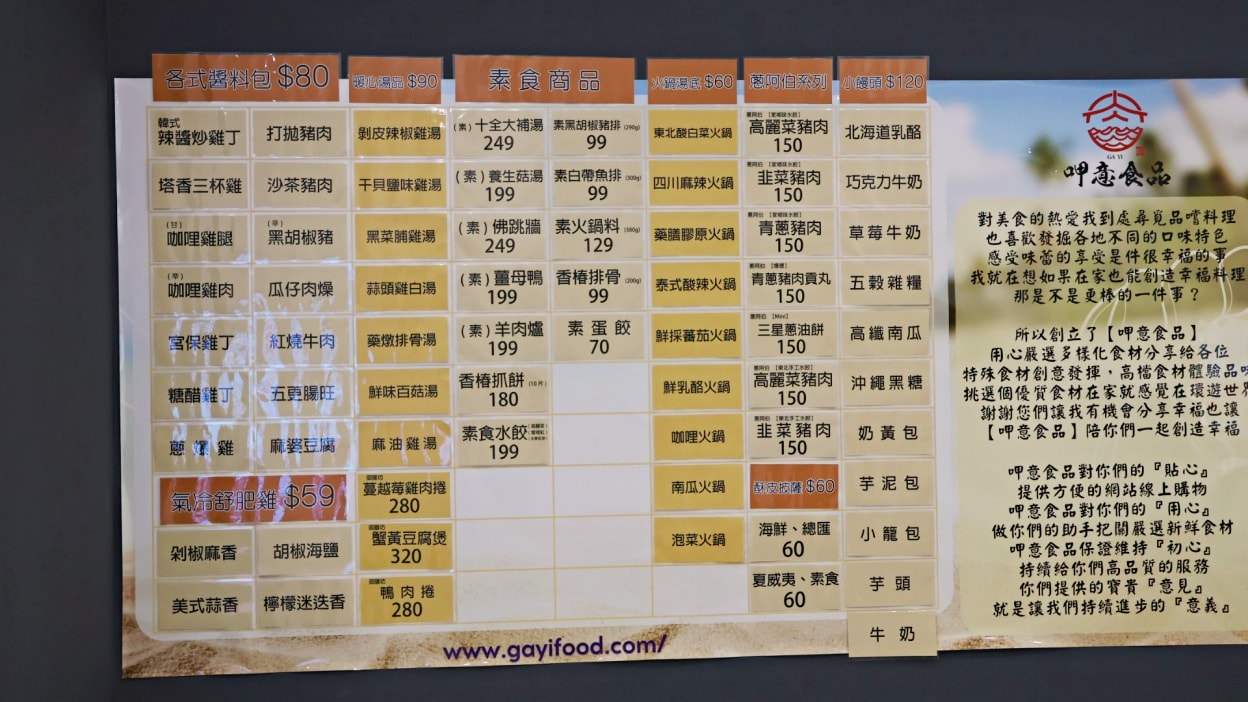 各式醬料包 $80
韓式
辣醬炒雞丁
打拋豬肉
塔香三杯雞
沙茶豬肉
(甘)
咖哩雞腿
(辛)
黑胡椒豬
(辛)
咖哩雞肉
瓜仔肉燥
宮保雞丁
紅燒牛肉
糖醋雞丁
五更腸旺
蔥爆雞
麻婆豆腐
氣冷舒肥雞 $59
剁椒麻香
胡椒海鹽
美式蒜香
檸檬迷迭香
暖心湯品 $90
剝皮辣椒雞湯
干貝鹽味雞湯
黑菜脯雞湯
蒜頭雞白湯
藥燉排骨湯
鮮味百菇湯
麻油雞湯
蔓越莓雞肉捲
280
蟹黃豆腐煲
320
鴨肉捲
280
素食商品
(素)十全大補湯
249
素黑胡椒豬排(290g)
99
(素)養生菇湯
199
素白帶魚排(300g)
99
(素)佛跳牆
249
素火鍋料(380g)
129
(素)薑母鴨
199
香椿排骨(200g)
99
(素)羊肉爐
199
素蛋餃
70
香椿抓餅(10片)
180
素食水餃
199
火鍋湯底 $60
東北酸白菜火鍋
四川麻辣火鍋
藥膳膠原火鍋
泰式酸辣火鍋
鮮採蕃茄火鍋
鮮乳酪火鍋
咖哩火鍋
南瓜火鍋
泡菜火鍋
蔥阿伯系列
蔥阿伯【家鄉味水餃】
高麗菜豬肉
150
蔥阿伯【家鄉味水餃】
韭菜豬肉
150
蔥阿伯【家鄉味水餃】
青蔥豬肉
150
青蔥豬肉貢丸
150
蔥阿伯【Mini】
三星蔥油餅
150
蔥阿伯【東北手工水餃】
高麗菜豬肉
150
蔥阿伯【東北手工水餃】
韭菜豬肉
150
酥皮披薩 $60
海鮮、總匯
60
夏威夷、素食
60
小饅頭 $120
北海道乳酪
巧克力牛奶
草莓牛奶
五穀雜糧
高纖南瓜
沖繩黑糖
奶黃包
芋泥包
小籠包
芋頭
牛奶
GA YI
呷意食品
對美食的熱愛我到處尋覓品嚐料理
也喜歡發掘各地不同的口味特色
感受味蕾的享受是件很幸福的事
我就在想如果在家也能創造幸福料理
那是不是更棒的一件事？
所以創立了【呷意食品】
用心嚴選多樣化食材分享給各位
特殊食材創意發揮，高檔食材體驗品味
挑選個優質食材在家就感覺在環遊世界
謝謝您們讓我有機會分享幸福也讓
【呷意食品】陪你們一起創造幸福
呷意食品對你們的『貼心』
提供方便的網站線上購物
呷意食品對你們的『用心』
做你們的助手把關嚴選新鮮食材
呷意食品保證維持『初心』
持續給你們高品質的服務
你們提供的寶貴『意見』
就是讓我們持續進步的『意義』
www.gayifood.com/